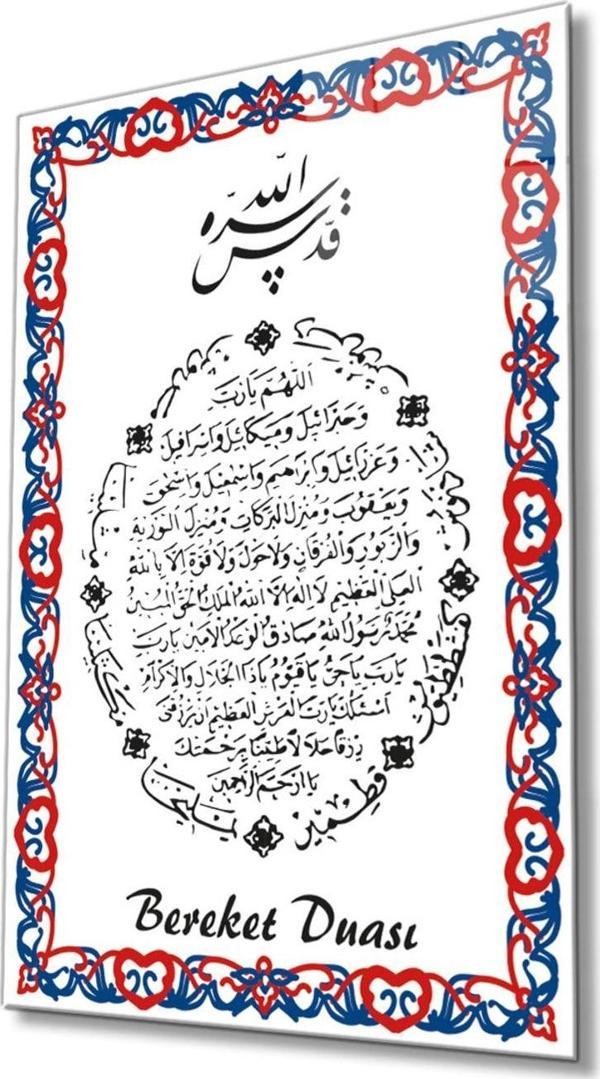 قدّس اللّه سرّه
اللهم يارب
وجبرائيل وميكائيل واسرافيل
وعزرائيل وابراهيم واسمعيل واسحق
ويعقوب ومنزل البركات ومنزل التورية
والزبور والفرقان ولاحول ولا قوة الا بالله
العلى العظيم لا اله الا الله الملك الحق المبين
محمد رسول الله صادق الوعد الامين يارب
يارب ياحى ياقيوم ياذا الجلال والاكرام
اسئلك يارب العرش العظيم ان ترزقنى
رزقا حلالا طيبا برحمتك
يا ارحم الراحمين
يمليخا
قطمير
Bereket Duası